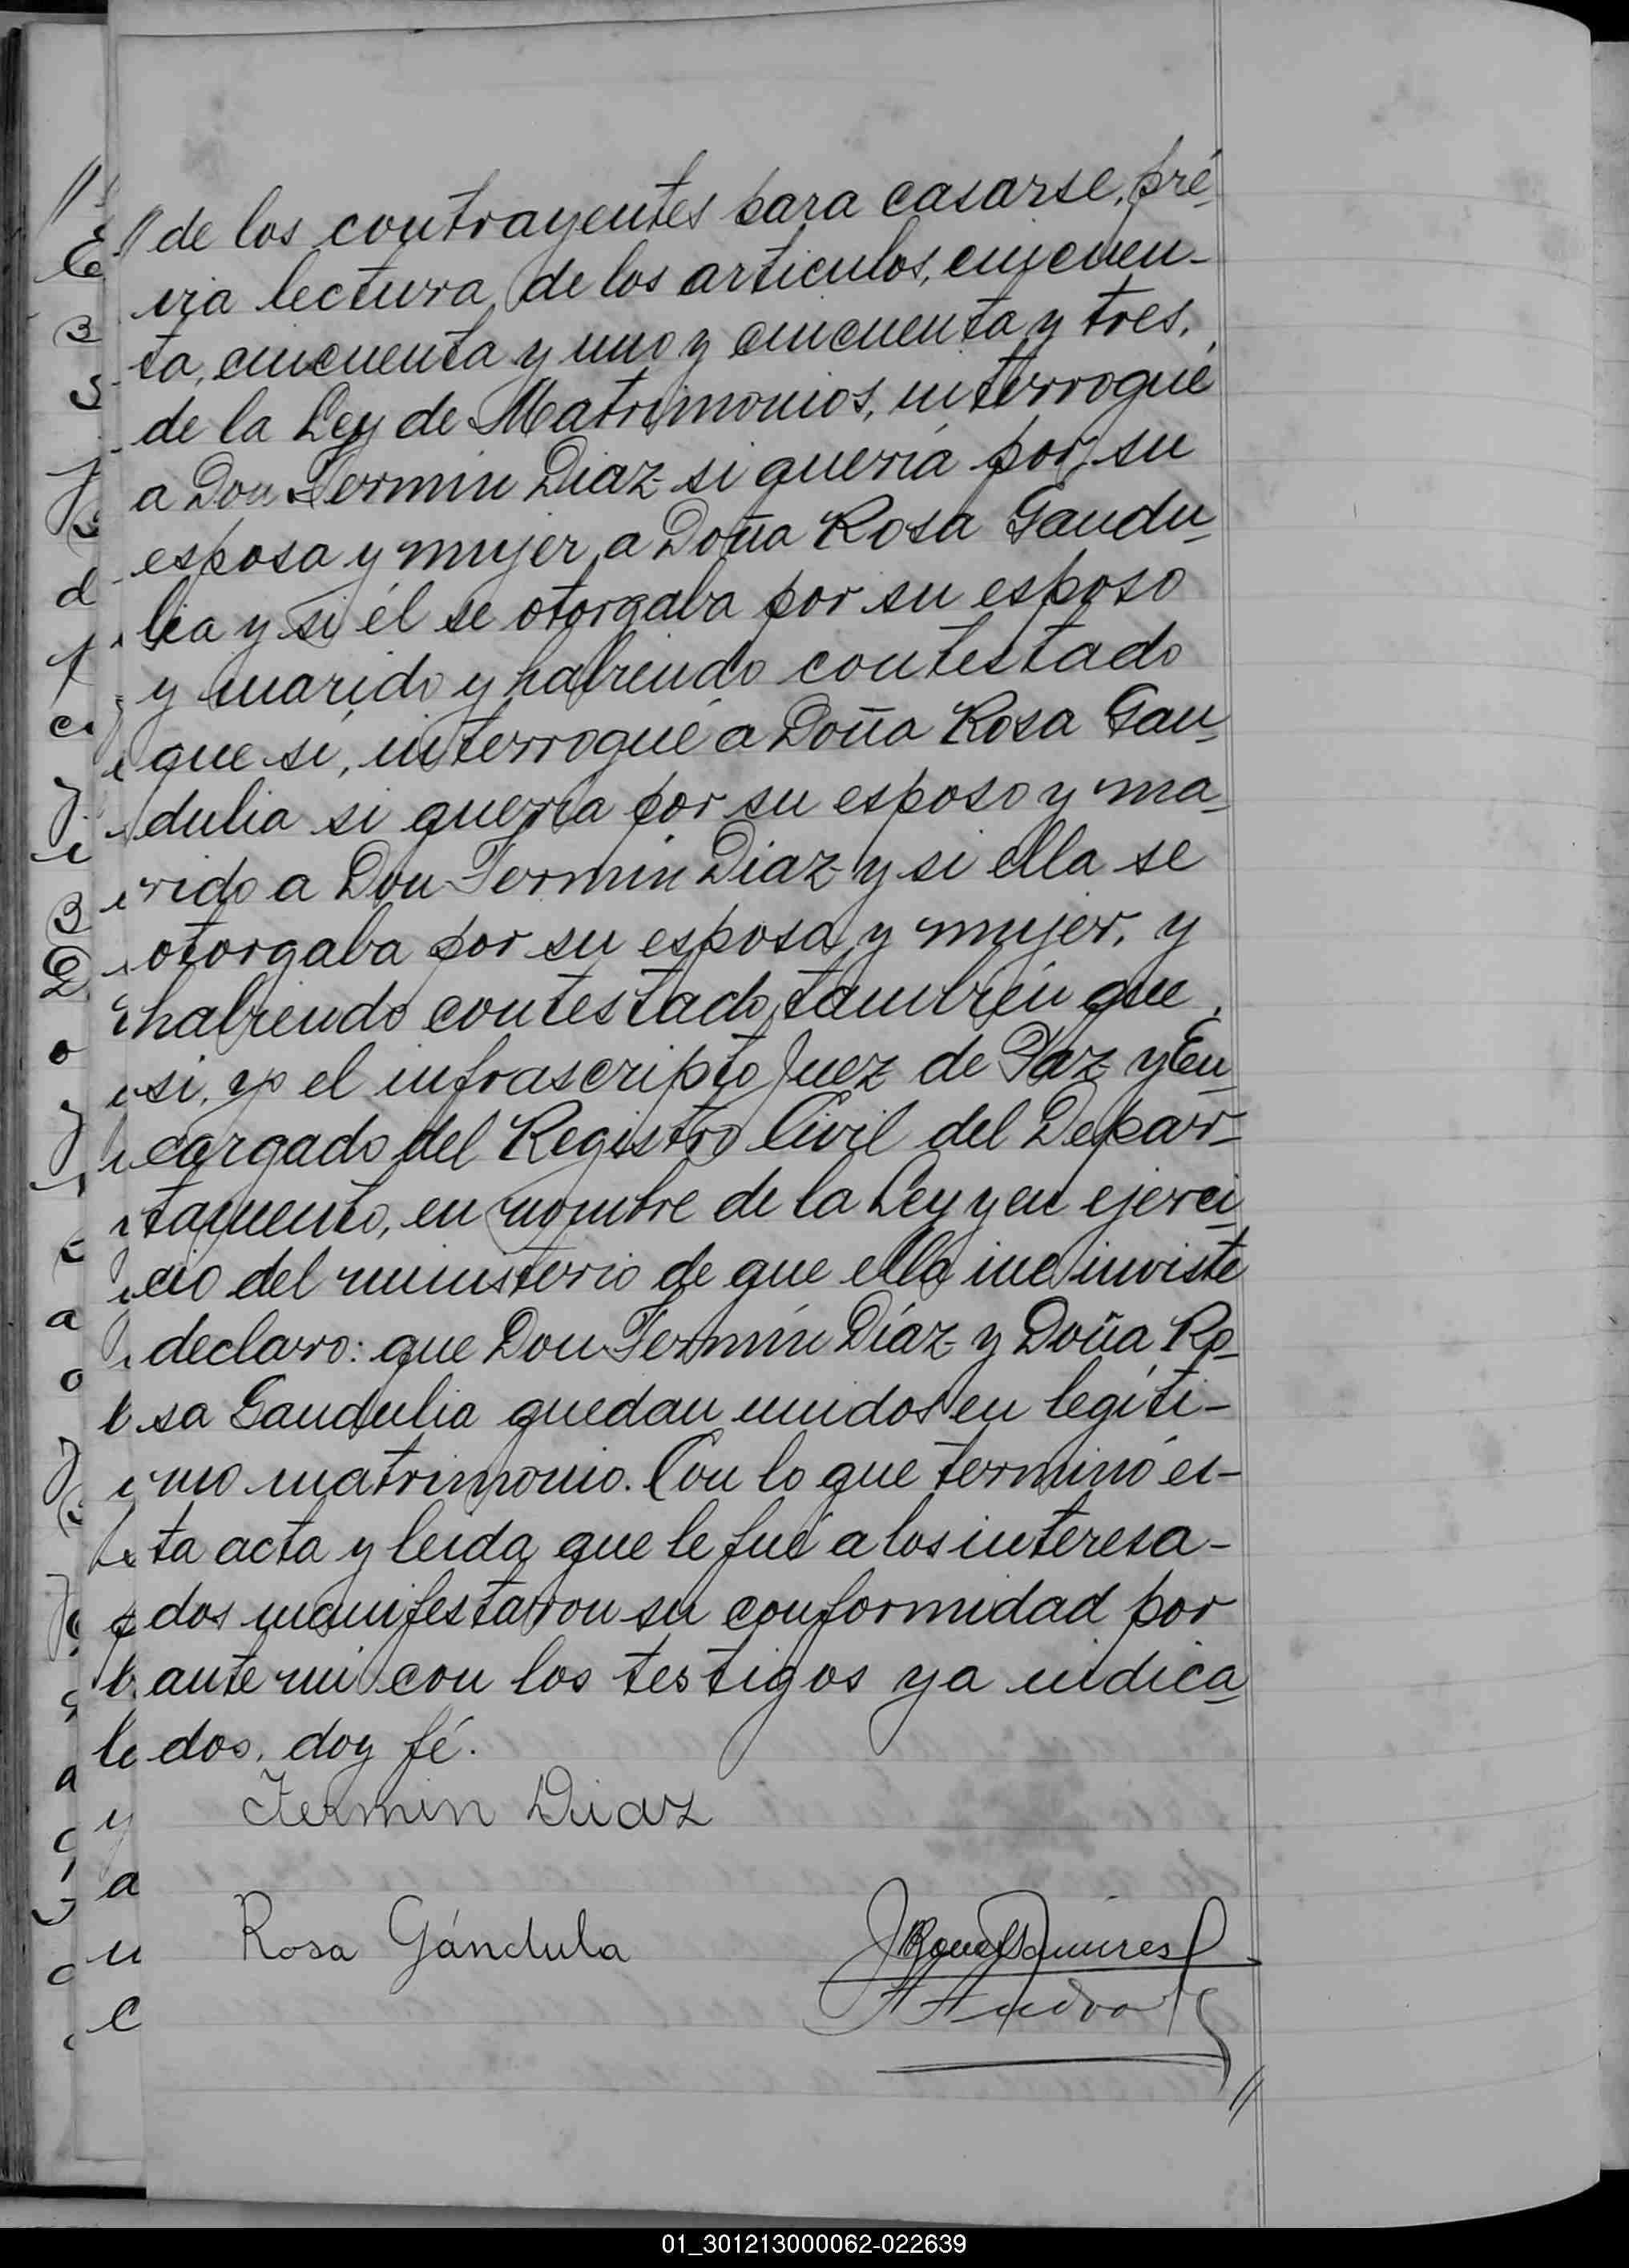 // de los contrayentes para casarse, pré-
via lectura de los articulos, cincuen-
ta, cincuenta y uno y cincuenta y tres,
de la Ley de Matrimonios, interrogué
a Don Fermin Diaz si quería por su
esposa y mujer a Doña Rosa Gandu-
lia y si él se otorgaba por su esposo
y marido y habiendo contestado
que sí, interrogué a Doña Rosa Gan-
dulia si quería por su esposo y ma-
rido a Don Fermín Diaz y si ella se
otorgaba por su esposa y mujer, y
habiendo contestado también que
si, yo el infrascripto Juez de Paz y En-
cargado del Registro Civil del Depar-
tamento, en nombre de la Ley y en ejerci-
cio del ministerio de que ella me inviste
declaro: que Don Fermín Díaz y Doña Ro-
sa Gandulia quedan unidos en legíti-
mo matrimonio. Con lo que terminó és-
ta acta y leida que le fué a los interesa-
dos manifestaron su conformidad por
ante mi con los testigos ya indica-
dos, doy fé.
Fermin Diaz
Rosa Gándula
Ramires
//
01_301213000062-022639